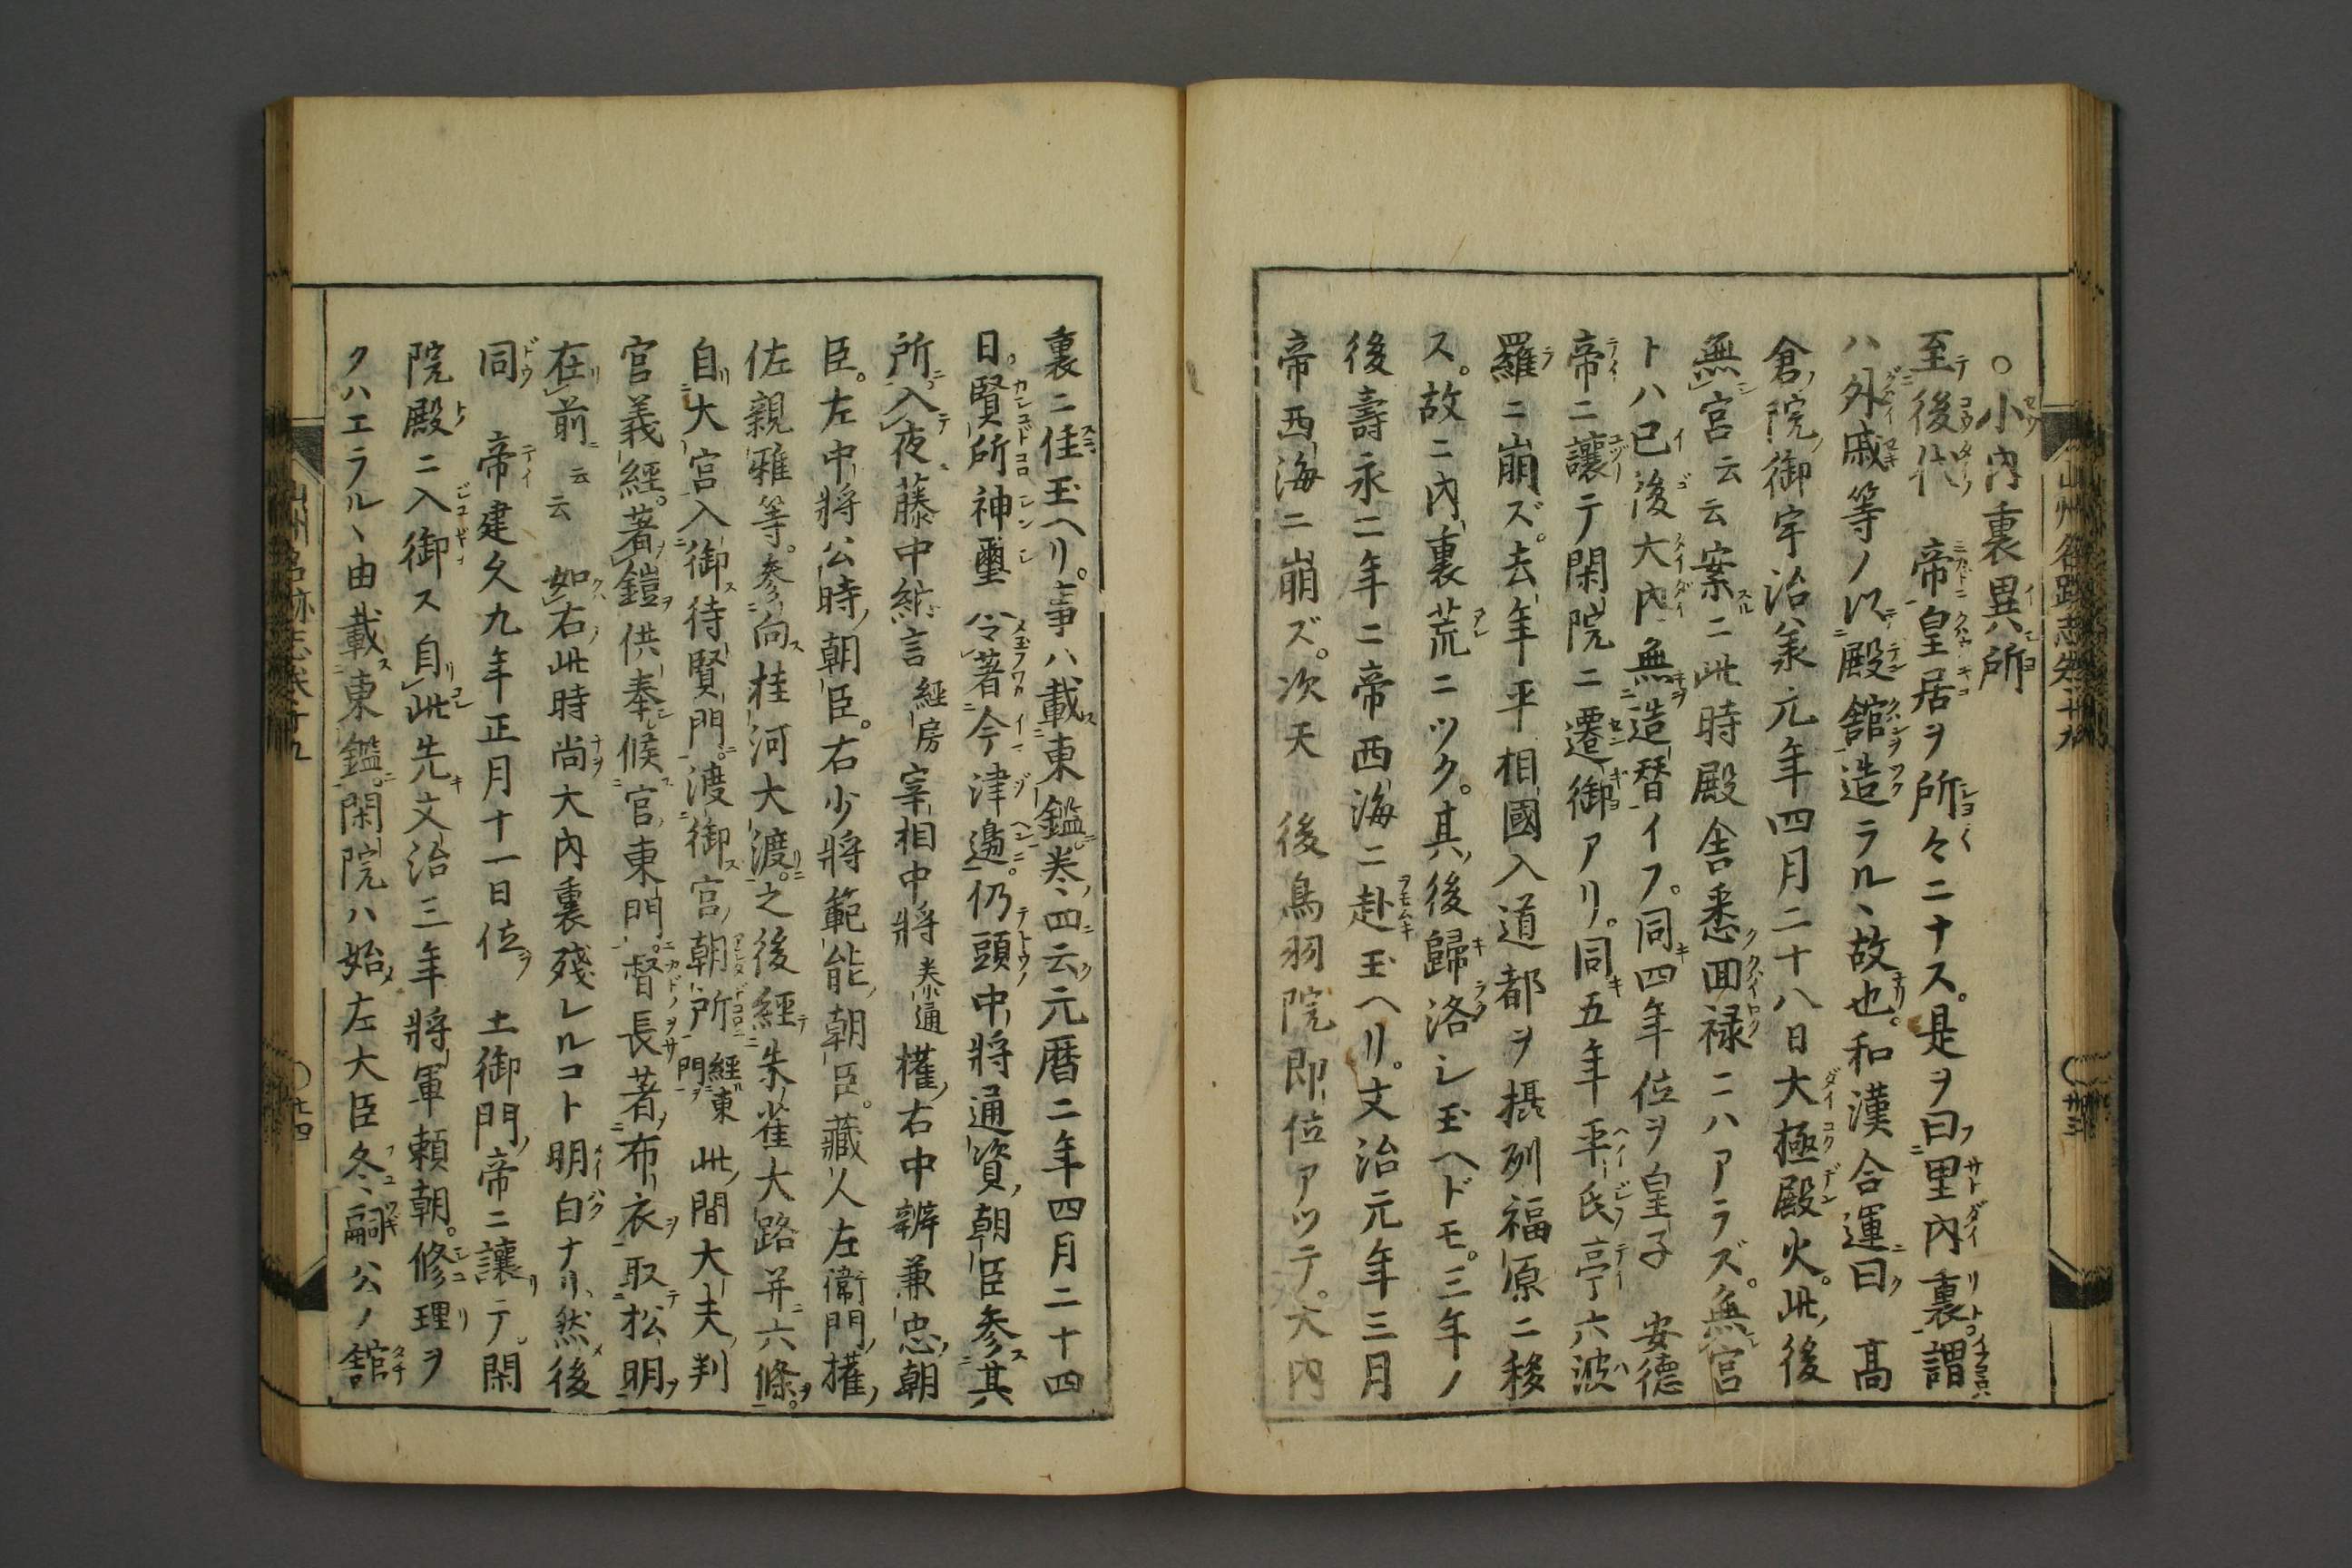 ○小内裏異所
至後代　帝皇居ヲ所々ニナス。是ヲ曰里内裏謂
ハ外戚等ノ以殿舘造ラル、故也。和漢合運曰　髙
倉院御宇治羕元年四月二十八日大極殿火。此後
無宮云云案ニ此時殿舎悉囬禄ニハアラズ。無宮
トハ已後大内無造替イフ。同四年位ヲ皇子　安德
帝ニ讓テ閑院ニ遷御アリ。同五年平氏亭六波
羅ニ崩ズ。去年平相國入道都ヲ摂列福原ニ移
ス。故ニ内裏荒ニツク。其後歸洛シ玉ヘドモ。三年ノ
後壽永二年ニ帝西海ニ赴玉ヘリ。文治元年三月
帝西海ニ崩ズ。次天　後鳥羽院即位アツテ。大内
裏ニ住玉ヘリ。事ハ載東鑑卷四云元暦二年四月二十四
日。賢所神璽　令著今津邊。仍頭中將通資朝臣参其
所入夜藤中納言經房宰相中將泰通權右中辨兼忠朝
臣。左中將公時朝臣。右少將範能朝臣。藏人左衞門權
佐親雅等。参向桂河大渡。之後經朱雀大路并六條。
自大宮入御待賢門。渡御官朝所經東門此間大夫判
官義經。著鎧供奉候官東門。督長著布衣取松明
在前云云　如右此時尚大内裏殘レルコト明白ナリ、然後
同　帝建久九年正月十一日位　土御門帝ニ讓テ。閑
院殿ニ入御ス自此先文治三年將軍頼朝。修理ヲ
クハエラル、由載東鑑。閑院ハ始左大臣冬嗣公ノ舘
山州名跡志卷十九